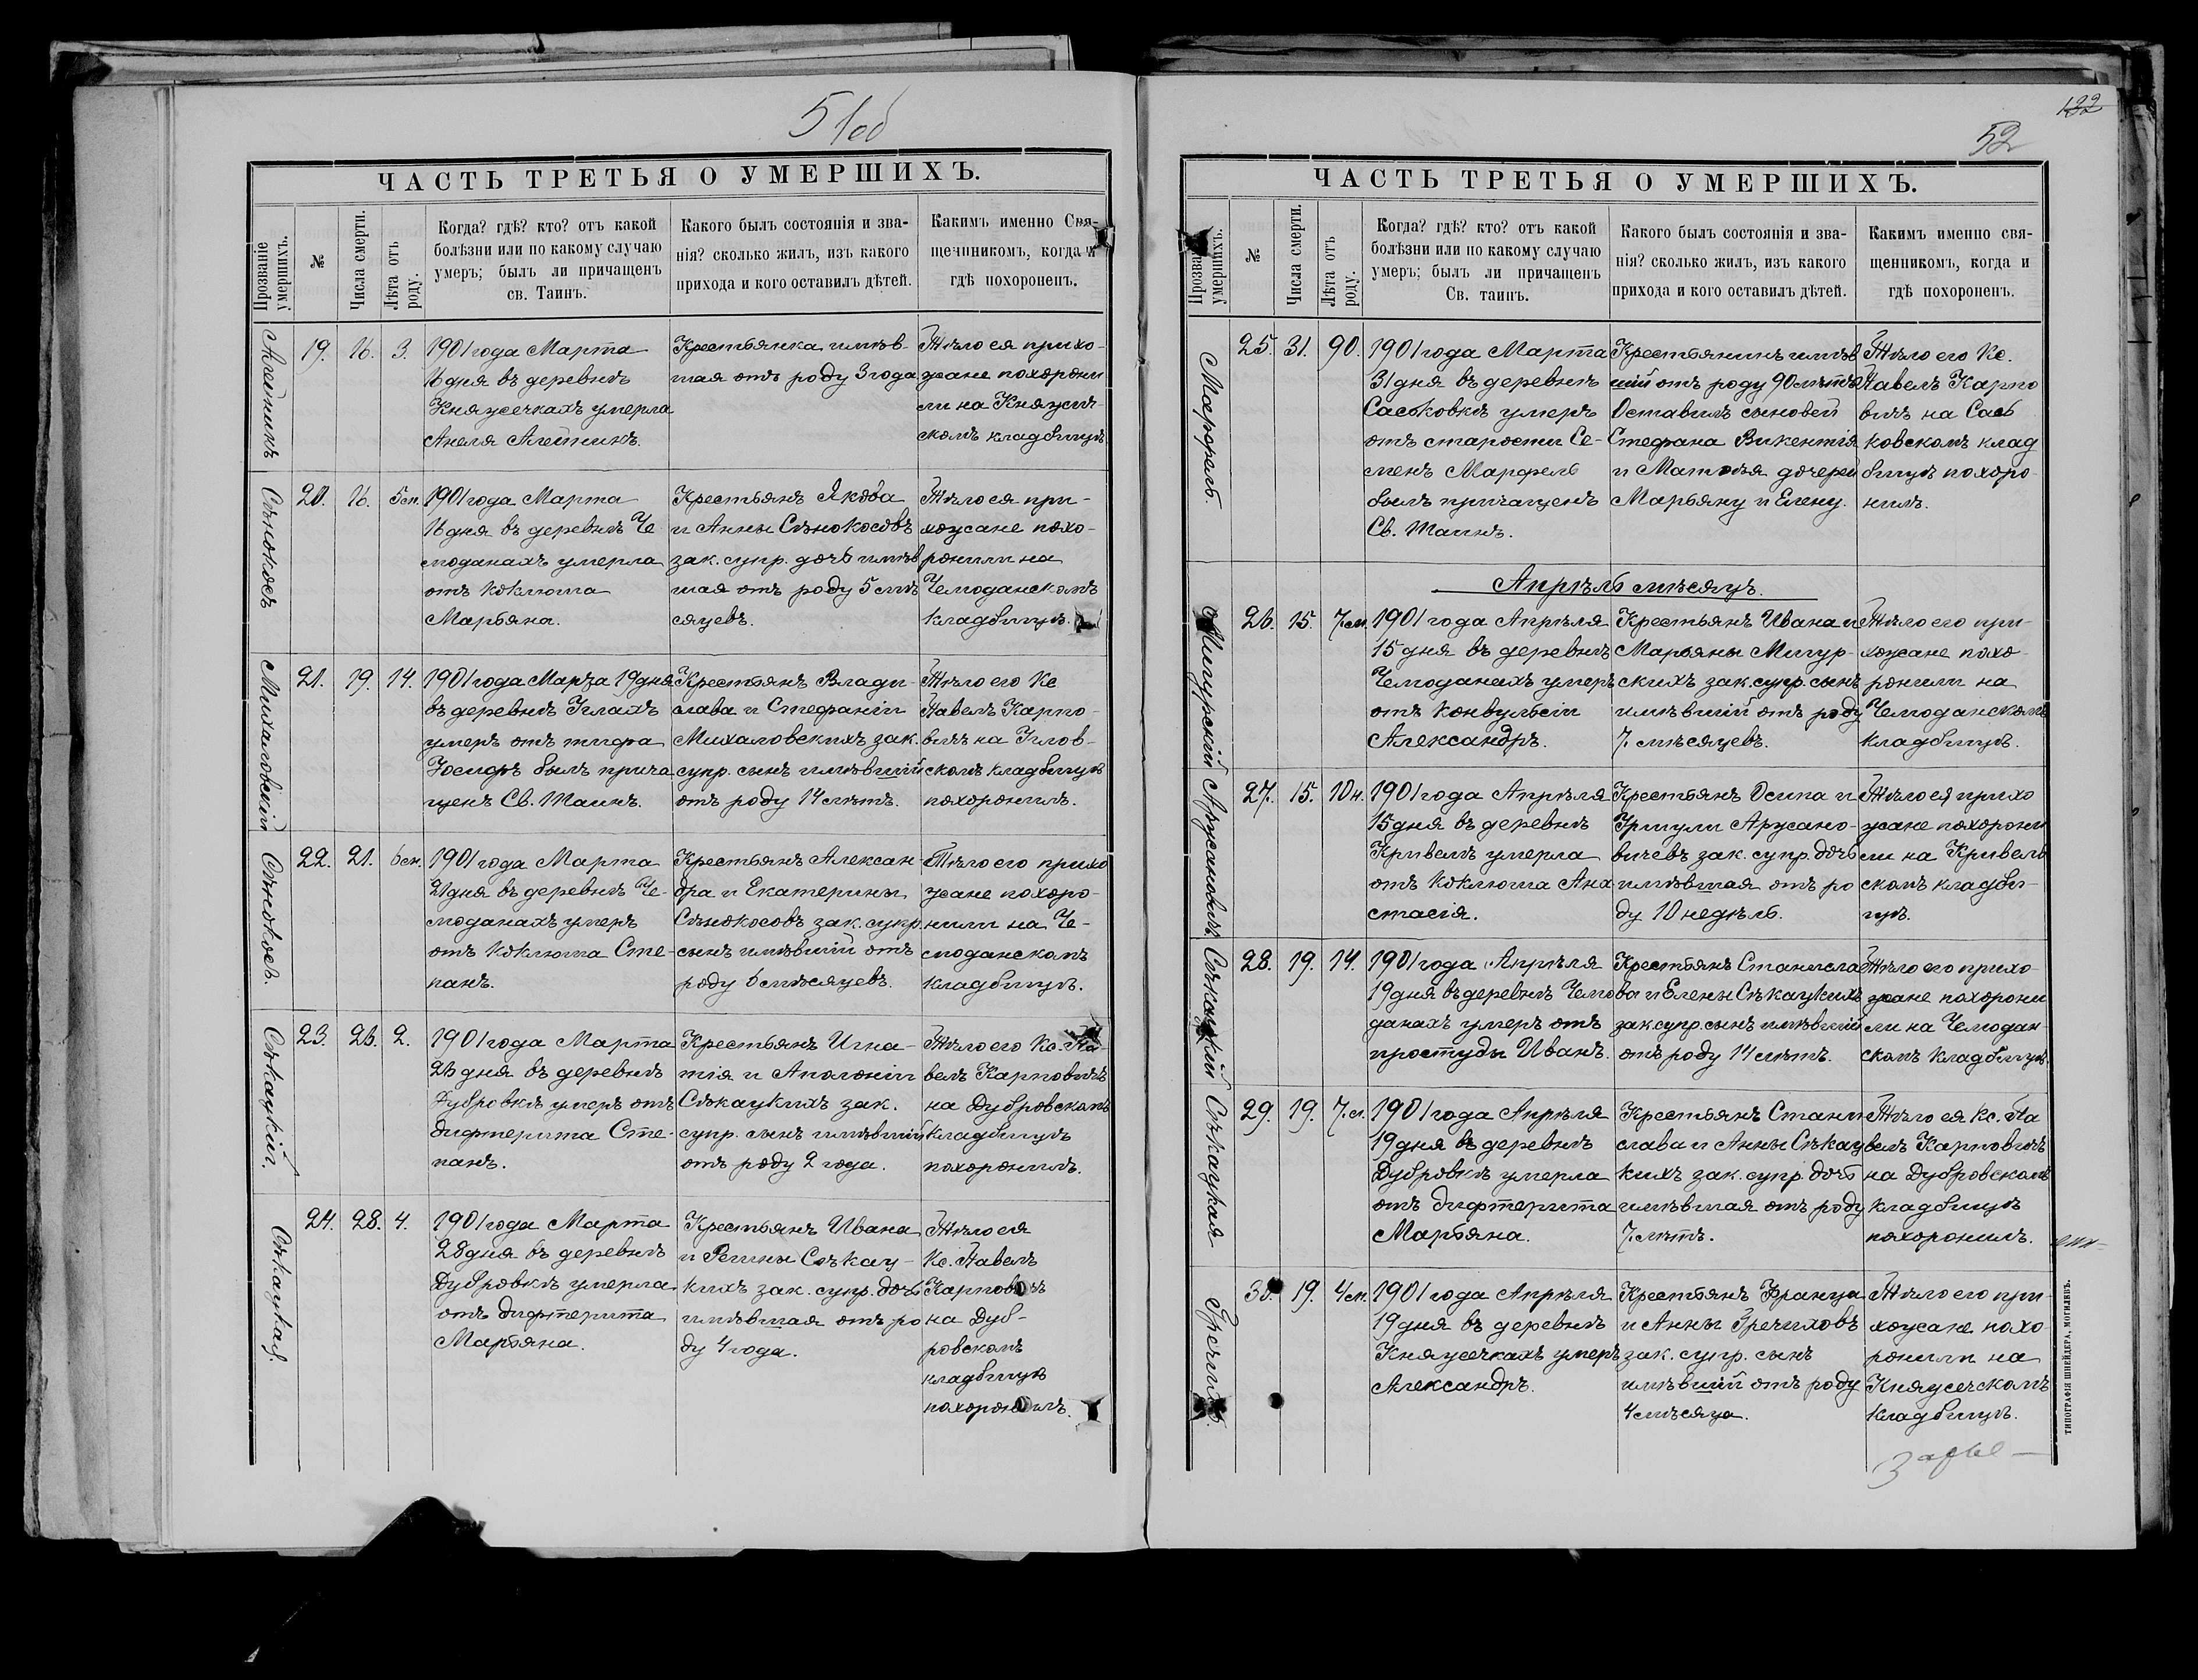 51об
ЧАСТЬ ТРЕТЬЯ О УМЕРШИХЪ.
Прозваніе умершихъ.
№
Числа смерти.
Лѣта отъ роду.
Когда? гдѣ? кто? отъ какой
болѣзни или по какому случаю
умеръ; былъ ли причащенъ
св. Таинъ.
Какого былъ состоянія и зва-
нія? сколько жилъ, изъ какого
прихода и кого оставилъ дѣтей.
Какимъ именно Свя-
щенникомъ, когда и
гдѣ похороненъ.
Алейникъ
19. 16. 3.
1901 года Марта
16 дня въ деревнѣ
Княжечкахъ умерла
Анеля Алейникъ.
Крестьянка имѣв-
шая отъ роду 3 года
Тѣло ея прихо-
жане похорони
ли на Княжеч-
скомъ кладбищѣ
Сѣнокосъ
20. 16. 5 м.
1901 года Марта
16 дня въ деревнѣ Че
моданахъ умерла
отъ коклюша
Марьяна.
Крестьянъ Якова
и Анны Сѣнокосовъ
зак. супр. дочь имѣв
шая отъ роду 5 мѣ
сяцевъ.
Тѣло ея при-
хожане похо-
ронили на
Чемоданскомъ
кладбищѣ.
Михаловскій
21. 19. 14.
1901 года Марта 19 дня
въ деревнѣ Углахъ
умеръ отъ тифа
Іосифъ былъ прича
щенъ Св. Таинъ.
Крестьянъ Влади-
слава и Стефаніи
Михаловскихъ зак.
супр. сынъ имѣвшій
отъ роду 14 лѣтъ.
Тѣло его Кс
Павелъ Карпо-
вичъ на Углов-
скомъ кладбищѣ
похоронилъ.
Сѣнокосъ.
22. 21. 6 м.
1901 года Марта
21 дня въ деревнѣ Че-
моданахъ умеръ
отъ коклюша Сте-
панъ.
Крестьянъ Алексан-
дра и Екатерины
Сѣнокосовъ зак. супр.
сынъ имѣвшій отъ
роду 6 мѣсяцевъ.
Тѣло его прихо
жане похоро-
нили на Че-
моданскомъ
кладбищѣ.
Сѣкацкій.
23. 26. 2.
1901 года Марта
26 дня въ деревнѣ
Дубровкѣ умеръ отъ
дифтерита Сте-
панъ.
Крестьянъ Игна-
тія и Аполоніи
Сѣкацкихъ зак.
супр. сынъ имѣвшій
отъ роду 2 года.
Тѣло его Кс. Па-
велъ Карповичъ
на Дубровскомъ
кладбищѣ
похоронилъ.
Сѣкацкая.
24. 28. 4.
1901 года Марта
28 дня въ деревнѣ
Дубровкѣ умерла
отъ дифтерита
Марьяна.
Крестьянъ Ивана
и Регины Сѣкац-
кихъ зак. супр. дочь
имѣвшая отъ ро
ду 4 года.
Тѣло ея
Кс. Павелъ
Карповичъ
на Дуб-
ровскомъ
кладбищѣ
похоронилъ.
132
52
ЧАСТЬ ТРЕТЬЯ О УМЕРШИХЪ.
Прозваніе умершихъ.
№
Числа смерти.
Лѣта отъ роду.
Когда? гдѣ? кто? отъ какой
болѣзни или по какому случаю
умеръ; былъ ли причащенъ
Св. таинъ.
Какого былъ состоянія и зва-
нія? сколько жилъ, изъ какого
прихода и кого оставилъ дѣтей.
Какимъ именно свя-
щенникомъ, когда и
гдѣ похороненъ.
Марфель.
25. 31. 90.
1901 года Марта
31 дня въ деревнѣ
Саськовкѣ умеръ
отъ старости Се-
менъ Марфель
былъ причащенъ
Св. Таинъ.
Крестьянинъ имѣв
шій отъ роду 90 лѣтъ
Оставилъ сыновей
Стефана Викентія
и Матвѣя дочерей
Марьяну и Елену.
Тѣло его Кс.
Павелъ Карпо
вичъ на Сась
ковскомъ клад
бищѣ похоро-
нилъ.
Апрѣль мѣсяцъ.
Мигурскій
26. 15. 7 м.
1901 года Апрѣля
15 дня въ деревнѣ
Чемоданахъ умеръ
отъ конвульсіи
Александръ.
Крестьянъ Ивана и
Марьяны Мигур-
скихъ зак. супр. сынъ
имѣвшій отъ роду
7 мѣсяцевъ.
Тѣло его при-
хожане похо-
ронили на
Чемоданскомъ
кладбищѣ.
Арусановичъ.
27. 15. 10 н.
1901 года Апрѣля
15 дня въ деревнѣ
Кривелѣ умерла
отъ коклюша Ана
стасія.
Крестьянъ Осипа и
Уршули Арусано-
вичевъ зак. супр. дочь
имѣвшая отъ ро
ду 10 недѣль.
Тѣло ея прихо
жане похорони
ли на Кривель
скомъ кладби-
щѣ.
Сѣкацкій
28. 19. 14.
1901 года Апрѣля
19 дня въ деревнѣ Чемо
данахъ умеръ отъ
простуды Иванъ.
Крестьянъ Станисла
ва и Елены Сѣкацкихъ
зак. супр. сынъ имѣвшій
отъ роду 14 лѣтъ.
Тѣло его прихо-
жане похорони
ли на Чемодан-
скомъ кладбищѣ.
Сѣкацкая
29. 19. 7 л.
1901 года Апрѣля
19 дня въ деревнѣ
Дубровкѣ умерла
отъ дифтерита
Марьяна.
Крестьянъ Стани
слава и Анны Сѣкац
кихъ зак. супр. дочь
имѣвшая отъ роду
7 лѣтъ.
Тѣло ея Кс. Па
велъ Карповичъ
на Дубровскомъ
кладбищѣ
похоронилъ.
Гречихъ.
30. 19. 4 м.
1901 года Апрѣля
19 дня въ деревнѣ
Княжечкахъ умеръ
Александръ.
Крестьянъ Франца
и Анны Гречиховъ
зак. супр. сынъ
имѣвшій отъ роду
4 мѣсяца.
Тѣло его при-
хожане похо-
ронили на
Княжечскомъ
кладбищѣ.
ТИПОГРАФІЯ ШНЕЙДЕРА, МОГИЛЕВЪ.